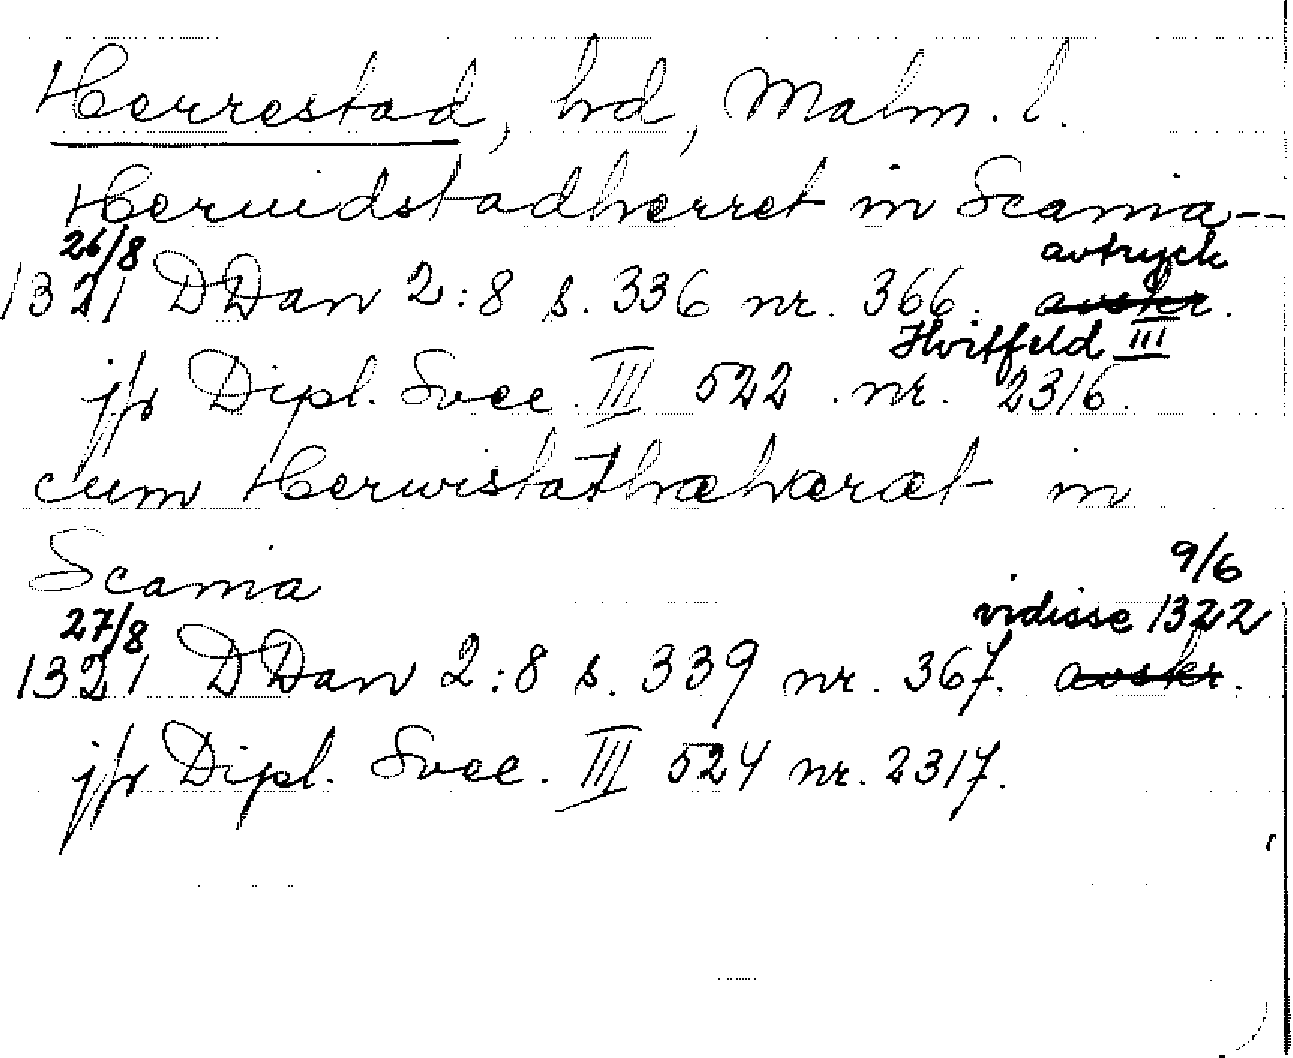 Herrestad, hd, Malm. l.
Heruidstadherret in Scania--
26/8 avtryck
1321 DDan 2:8 s. 336 nr. 366. avskr.
Hvitfeld III
jfr Dipl. Svec. III 522 . nr. 2316.
cum Herwistathæhæræt in
Scania
9/6
27/8 vidisse 1322
1321 DDan 2:8 s. 339 nr. 367. avskr.
jfr Dipl. Svec. III 524 nr. 2317.